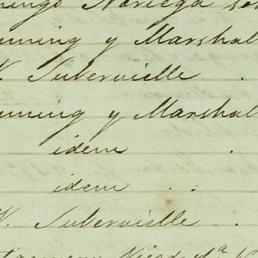 mingo Noriega
unning y Marshal
K. Subervielle .
unning y Marshal
idem .
idem . .
K. Subervielle . .